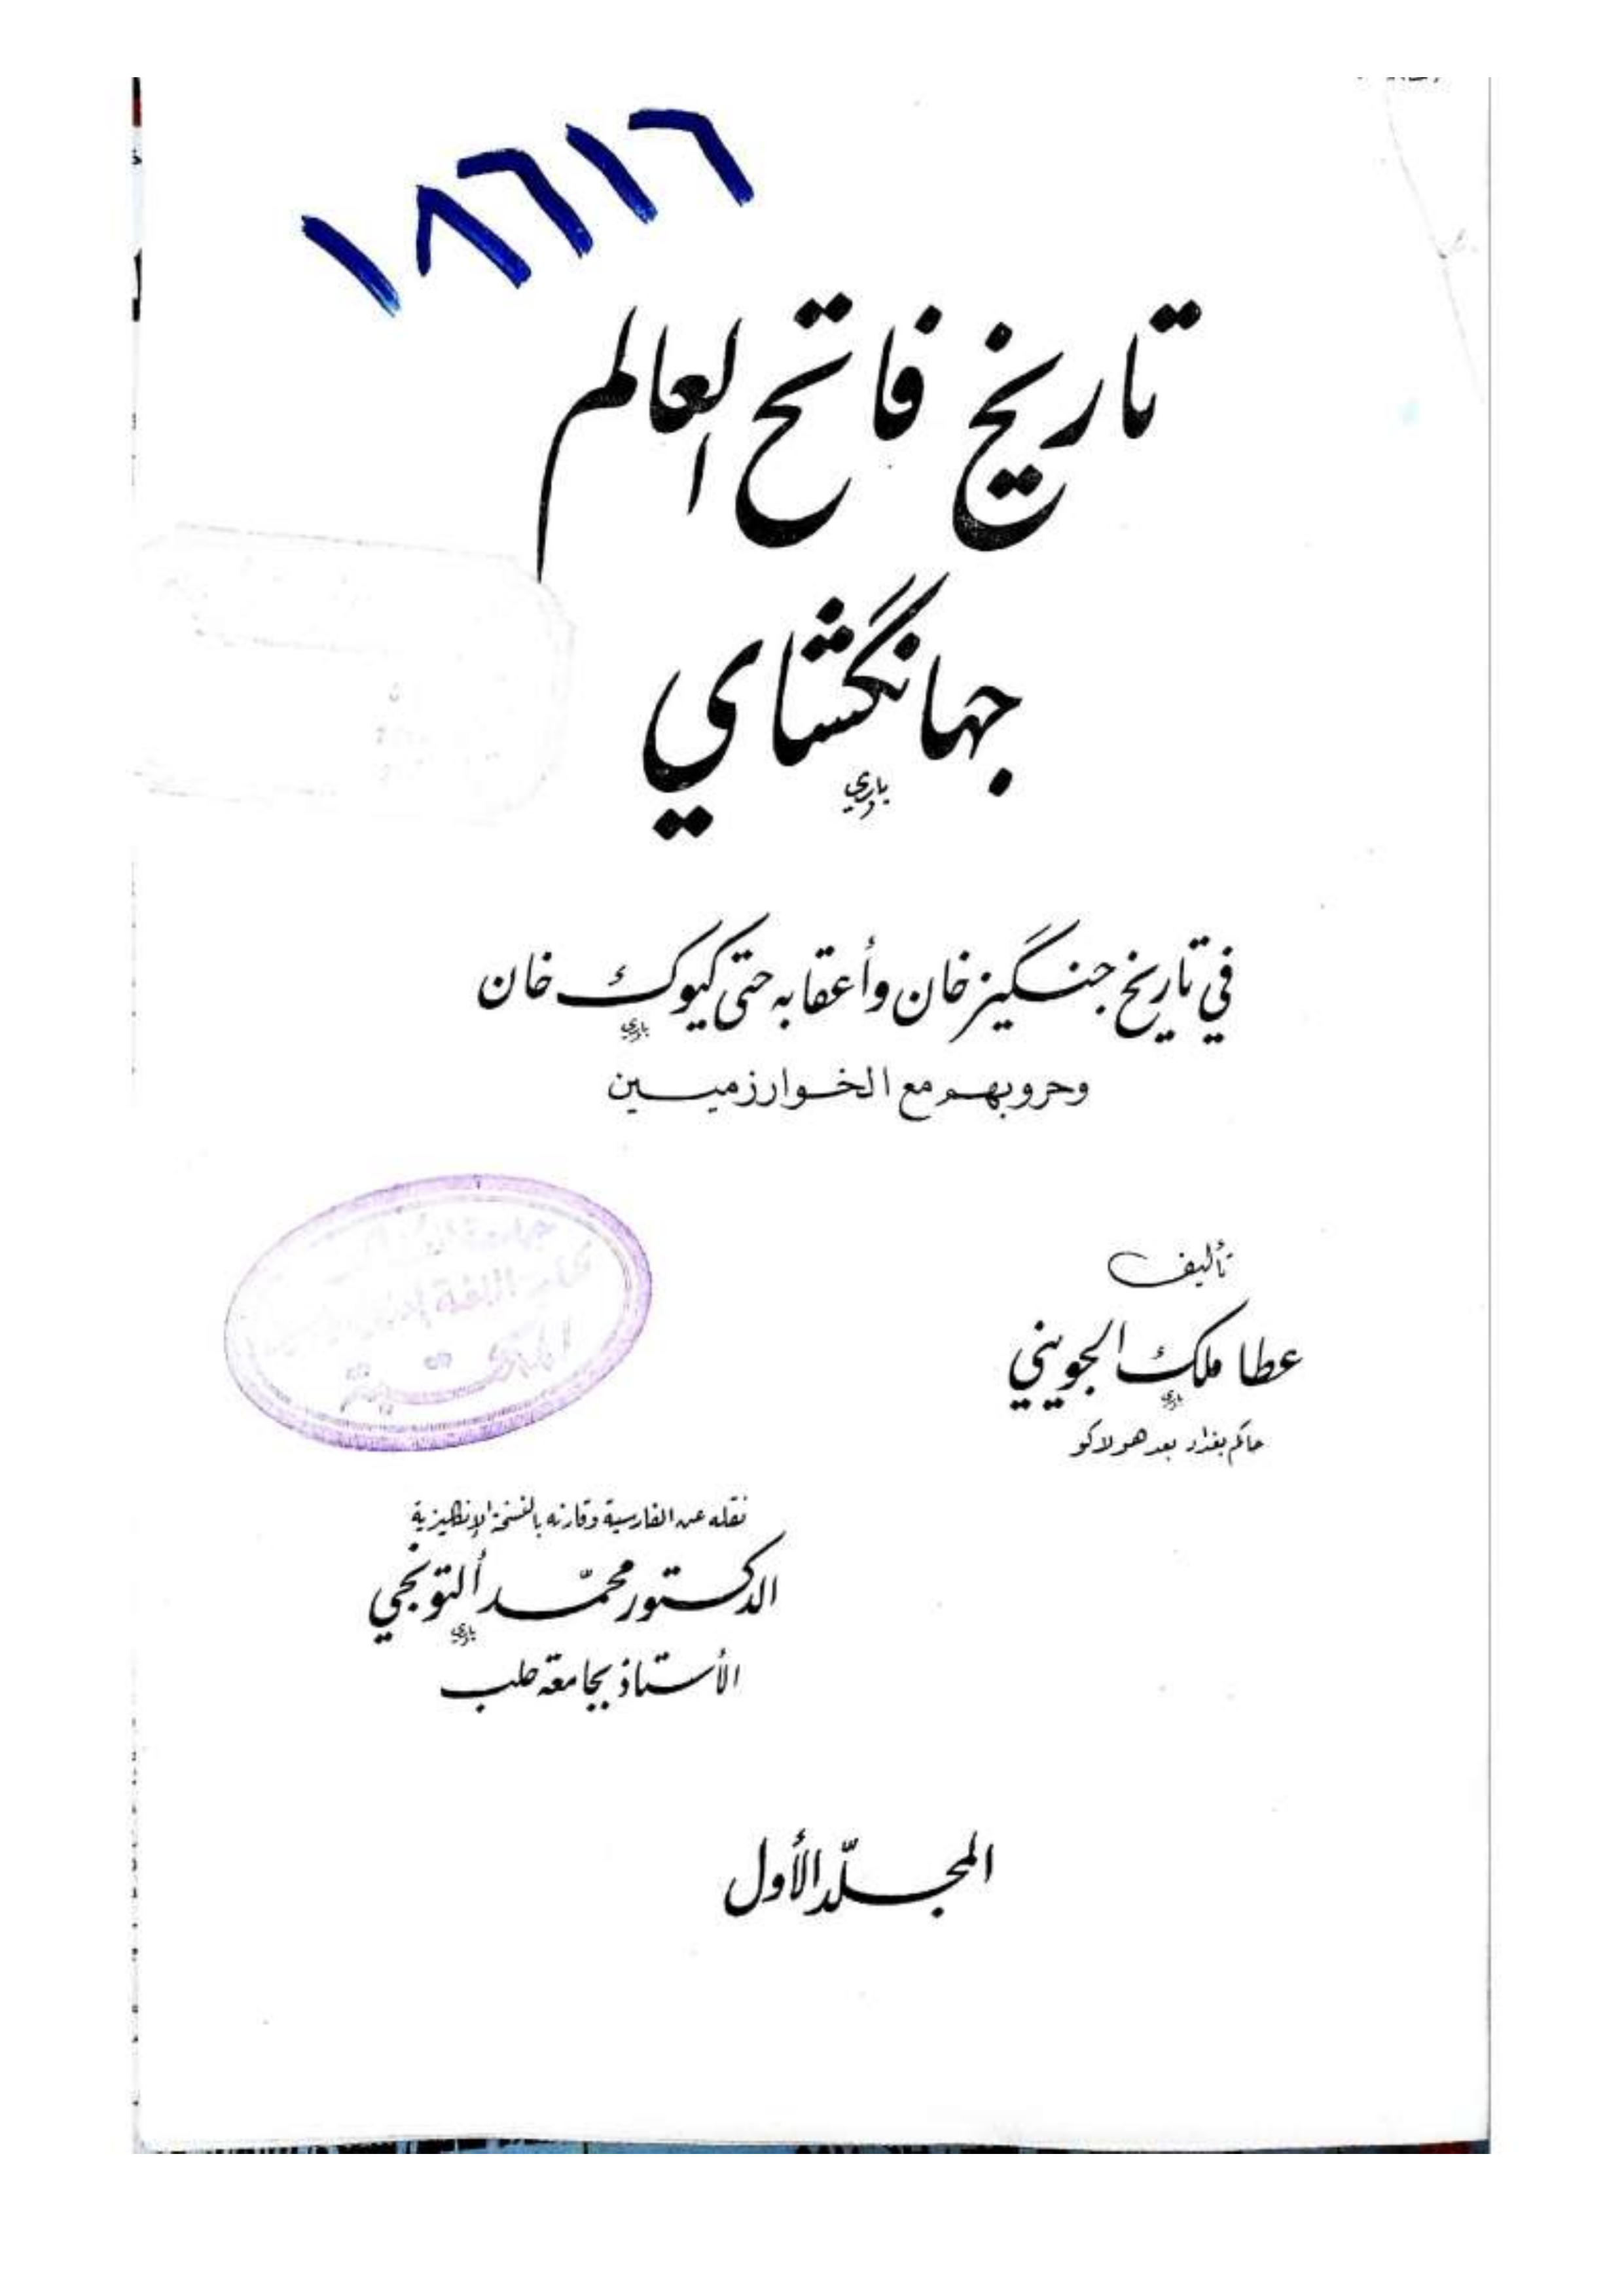 ١٨٦١٦
تاريخ فاتح العالم
جهانگشاي
باري
في تاريخ جنگيز خان وأعقابه حتى كيوك خان
باري
وحروبهم مع الخوارزميين
تأليف
عطا ملك الجويني
باري
حاكم بغداد بعد هولاكو
نقله عن الفارسية وقارنه بالنسخة الإنكليزية
الدكتور محمّد ألتونجي
باري
الأستاذ بجامعة حلب
المجلّد الأول